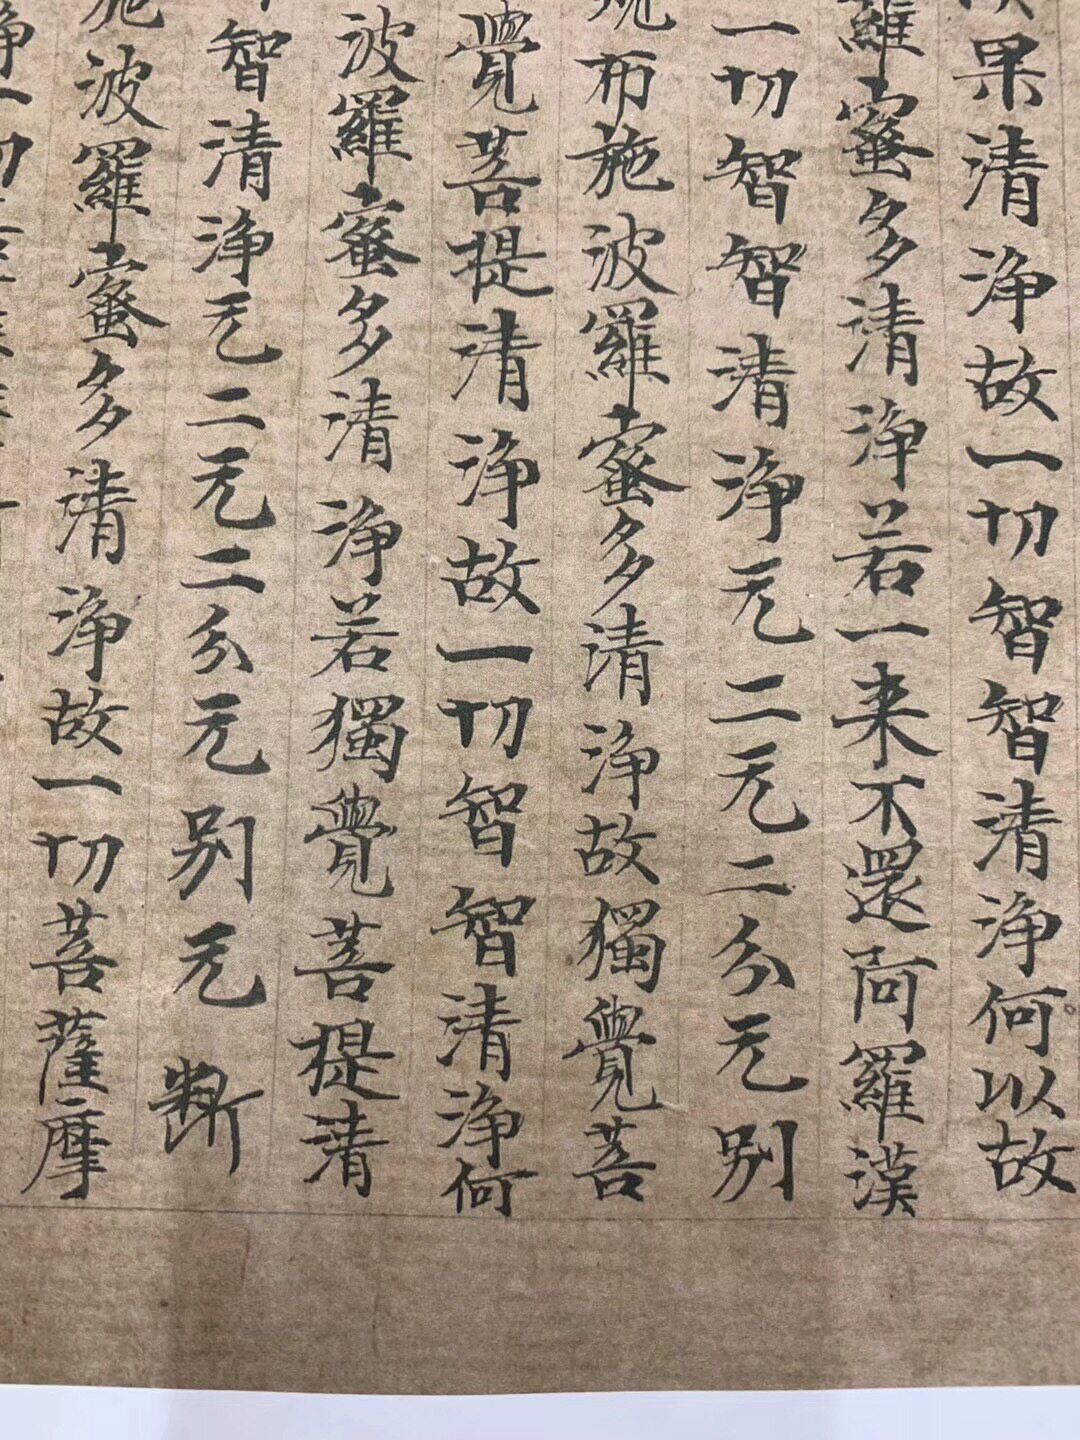 果清净故一切智智清净何以故
羅蜜多清净若一来不還阿羅漢
一切智智清净无二无二分无别
布施波羅蜜多清净故獨覺菩
覺菩提清净故一切智智清净何
波羅蜜多清净若獨覺菩提清
智清净无二无二分无别无断
施波羅蜜多清净故一切菩薩摩
净一切